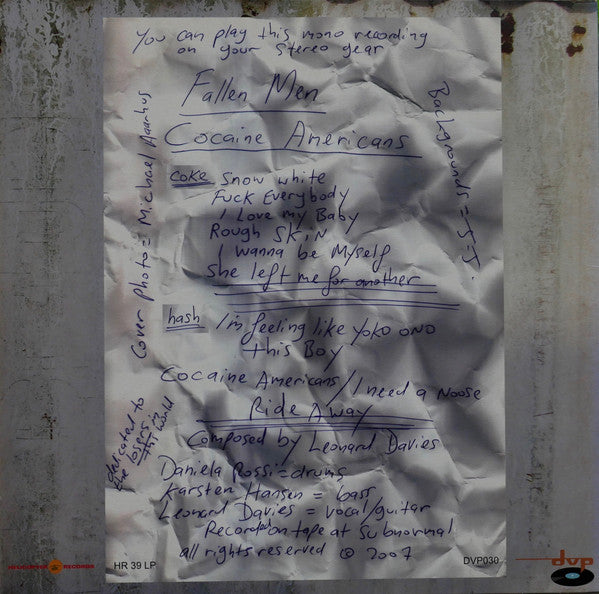 You can play this mono recording
on your Stereo gear
Fallen Men
Cocaine Americans
coke Snow white
Fuck Everybody
I Love my Baby
Rough Skin
I wanna be Myself
She left me for another
hash I'm feeling like Yoko ONO
this Boy
Cocaine Americans / I need a Noose
Ride Away
Composed by Leonard Davies
Daniela Rossi = drums
Karsten Hansen = bass
Leonard Davies = vocal/guitar
Recorded on tape at Subnormal
all rights reserved © 2007
Cover photo = Michael Aaarhus
Backgrounds = J.J.
dedicated to
the losers in
this world
RECORDS
HR 39 LP
DVP030
dvp